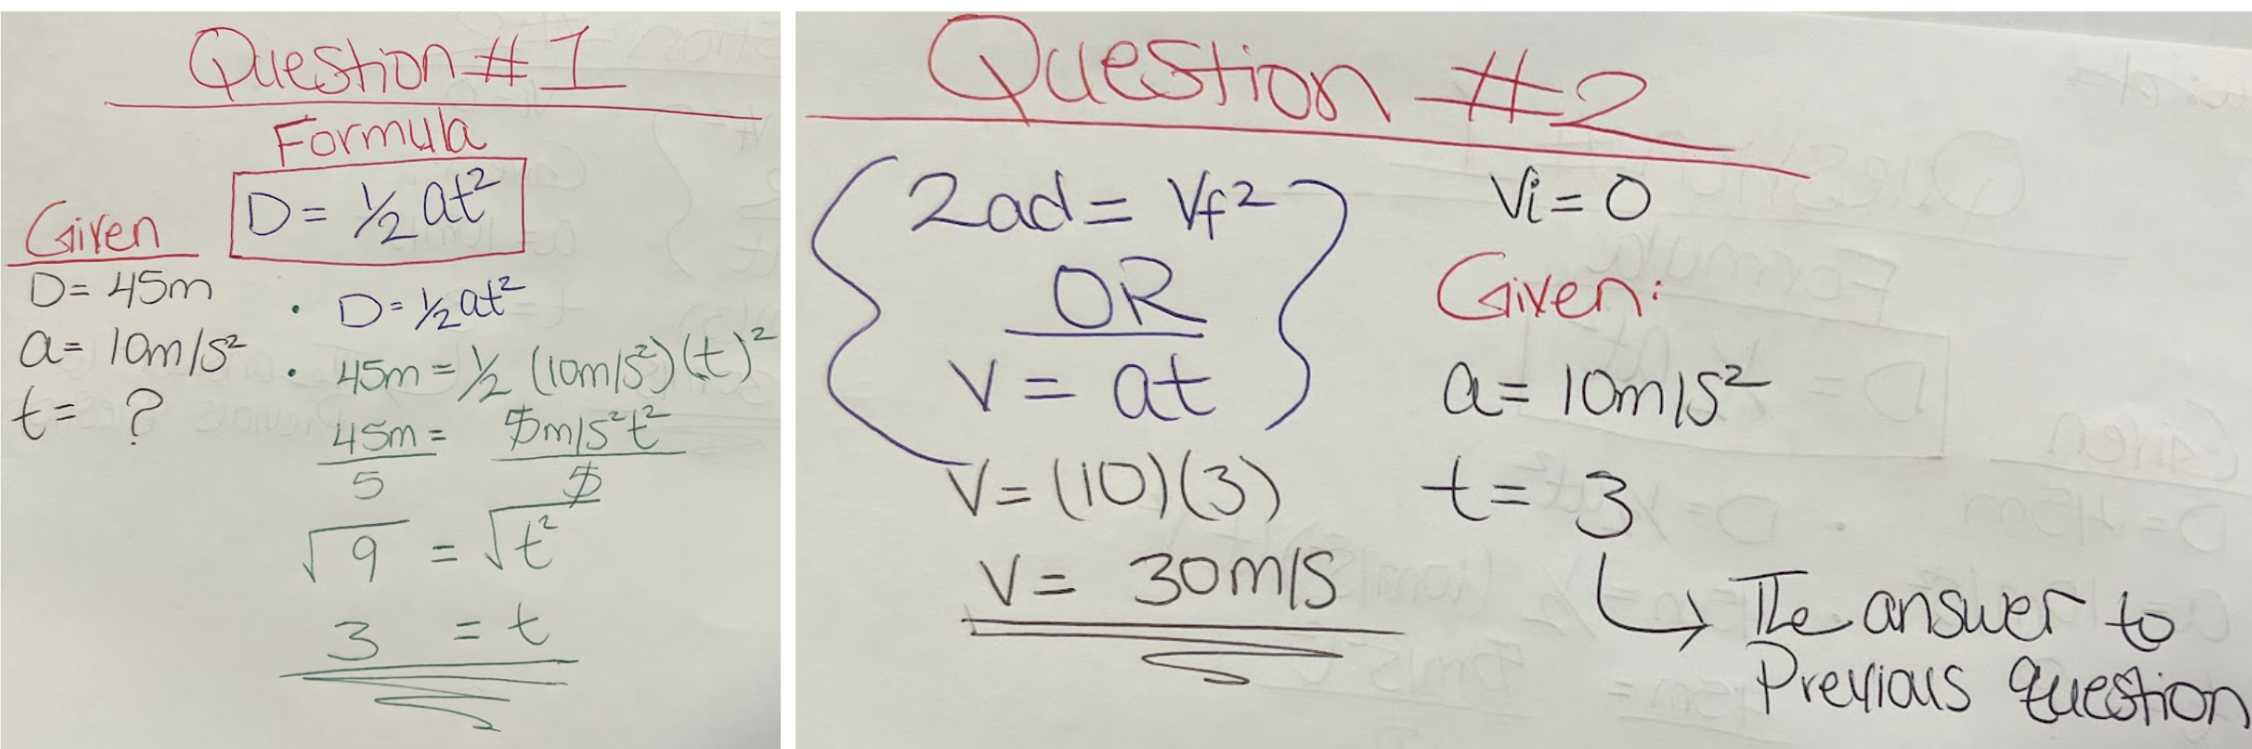 Question #1
Formula
D = ½ at²
Given
D = 45m
a = 10m/s²
t = ?
• D = ½ at²
• 45m = ½ (10m/s²)(t)²
45m = 5m/s² t²
5 5
√9 = √t²
3 = t
Question #2
2ad = Vf²
OR
V = at
V = (10)(3)
V = 30m/s
Vi = 0
Given:
a = 10m/s²
t = 3
↳ The answer to
Previous question